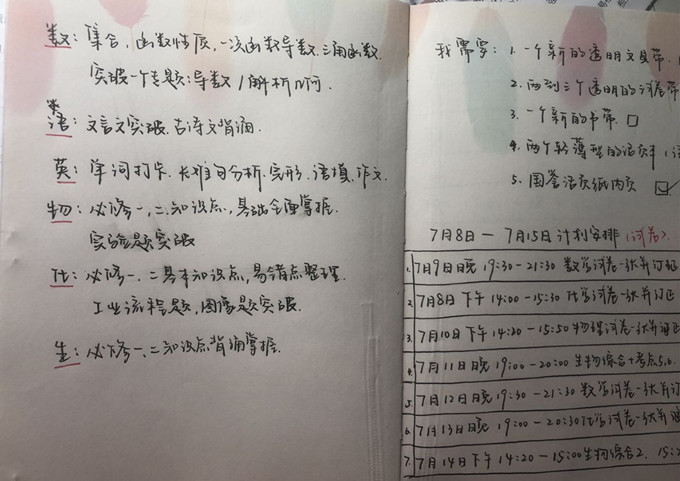 数：集合、函数性质、一次函数导数、三角函数、
突破一个专题：导数/解析几何.
*语：文言文突破、古诗文背诵.
英：单词打卡、长难句分析、完形、语填、作文.
物：必修一、二知识点，基础全面掌握.
实验题突破
化：必修一、二基本知识点，易错点整理.
工业流程题，图像题突破.
生：必修一、二知识点背诵掌握.
我需要：1. 一个新的透明文具带.
2. 两到三个透明的试卷带
3. 一个新的书带. □
4. 两个轻薄型的活页本
5. 国誉活页纸内页 ☑
7月8日 — 7月15日计划安排（试卷）.
1. 7月9日晚 19:30 - 21:30 数学试卷一张并订正
2. 7月8日下午 14:00 - 15:30 化学试卷一张并订正
3. 7月10日下午 14:20 - 15:50 物理试卷一张并订正
4. 7月11日晚 19:00 - 20:00 生物综合+考点5,6.
5. 7月12日晚 19:30 - 21:30 数学试卷一张并订
6. 7月13日晚 19:00 - 20:30 化学试卷一张并
7. 7月14日下午 14:20 - 15:00 生物综合2. 15:2